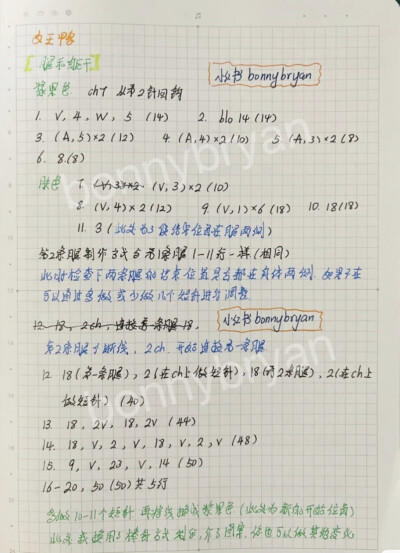 女王甲客
【腿和躯干】
小红书 bonnybryan
苹果色 ch7 从第2针回钩
1. V, 4, W, 5 (14) 2. blo 14 (14)
3. (A, 5)×2 (12) 4. (A, 4)×2 (10) 5. (A, 3)×2 (8)
6. 8 (8)
肤色 7. (V, 3)×2 (10)
8. (V, 4)×2 (12) 9. (V, 1)×6 (18) 10. 18 (18)
11. 3 (此处为3 最结束位置在腿两侧)
第2条腿制作方式与第1条腿1-11行一样(相同)
此时检查下两条腿的结束位置是否都在身体两侧. 如果不在
可以通过多做或少做几个短针进行调整
12. 18, 2ch, 连接第一条腿 18,
小红书 bonnybryan
第2条腿不断线, 2ch, 开始连接第一条腿
12. 18 (第一条腿), 2 (在ch上做短针), 18 (第2条腿), 2 (在ch上
做短针) (40)
13. 18, 2V, 18, 2V (44)
14. 18, V, 2, V, 18, V, 2, V (48)
15. 9, V, 23, V, 14 (50)
16-20, 50 (50) 共5行
多做10-11个短针 再换线换成苹果色 (此处为新的开始位置)
bonnybryan
bonnybryan
bonnybryan